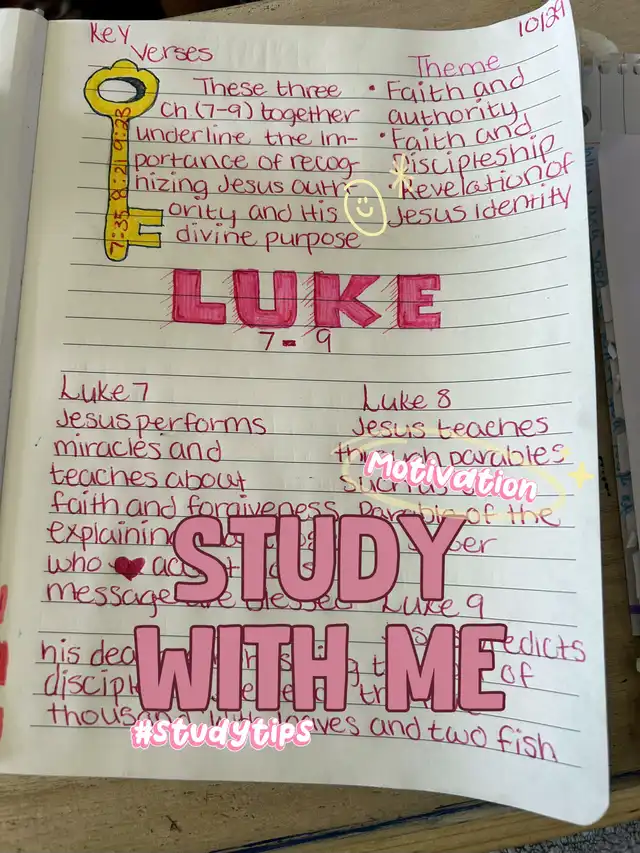 10/29
Key
Verses
7:35 8:21 9:23
These three
Ch (7-9) together
underline the Im-
portance of recog-
nizing Jesus auth-
ority and His
divine purpose
Theme
• Faith and
authority
• Faith and
Discipleship
• Revelation of
Jesus Identity
LUKE
7-9
Luke 7
Jesus performs
miracles and
teaches about
faith and forgiveness
explaining
who
message are blessed
Luke 8
Jesus teaches
through parables
such as
Parable of the
Luke 9
predicts
his
of
and two fish
Motivation
STUDY
WITH ME
#studytips